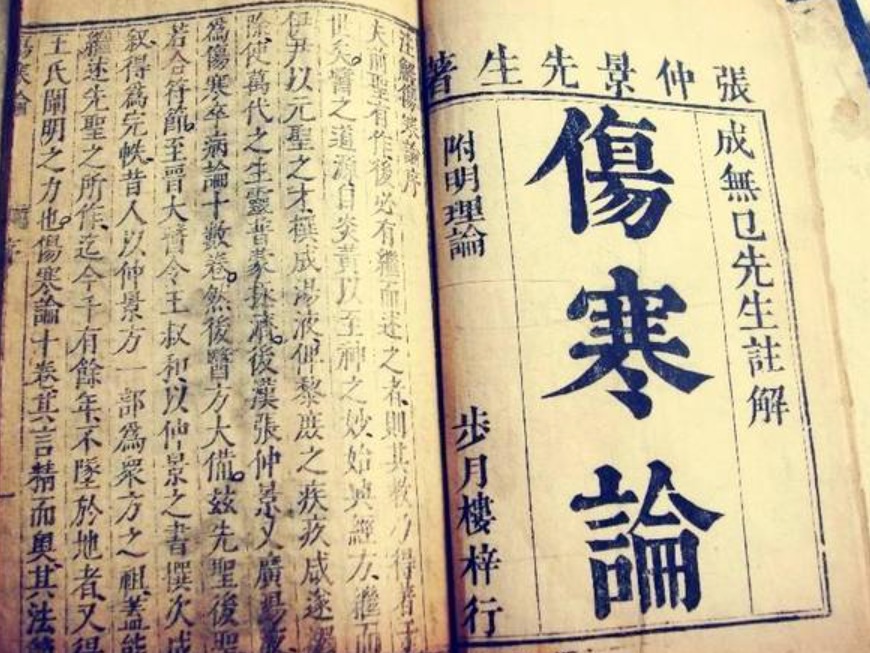 張仲景先生著
成無已先生註解
傷寒論
附明理論
步月樓梓行
注解傷寒論序
夫前聖有作後必有繼而述之者則其教乃得著于
世矣醫之道源自炎黃以至神之妙始興經方繼而
伊尹以元聖之才撰成湯液俾黎庶之疾疢咸遂蠲
除使萬代之生靈普蒙拯濟後漢張仲景又廣湯液
為傷寒卒病論十數卷然後醫方大備茲先聖後聖
若合符節至晉太醫令王叔和以仲景之書撰次成
叙得為完帙昔人以仲景方一部為眾方之祖蓋能
繼述先聖之所作迄今千有餘年不墜於地者又得
王氏闡明之力也傷寒論十卷其言精而奧其法簡
傷寒論
序